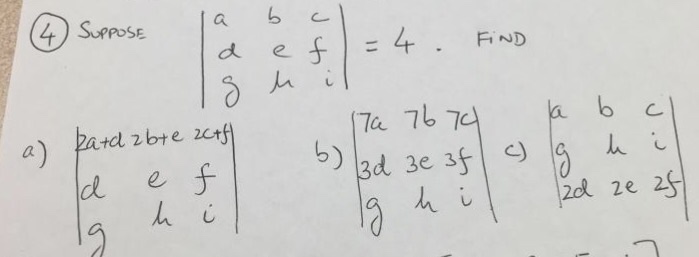 ④ SUPPOSE |a b c| = 4. FIND
|d e f|
|g h i|
a) |2a+d 2b+e 2c+f|
|d e f|
|g h i|
b) |7a 7b 7c|
|3d 3e 3f|
|g h i|
c) |a b c|
|g h i|
|2d 2e 2f|